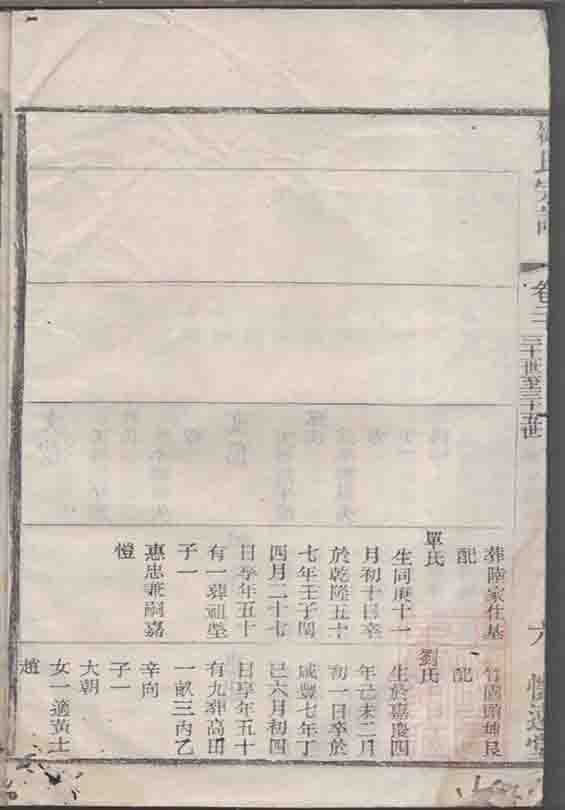 氏宗
卷二
三十世至三十五世
葬陸家住基
配
單氏
生同庚十一
月初十日卒
於乾隆五十
七年壬子閏
四月二十七
日享年五十
有一葬祖塋
子一
惠忠兼嗣嘉
愷
竹園
配
劉氏
生於嘉慶四
年己未二月
初一日卒於
咸豐七年丁
巳六月初四
日享年五十
有九葬高田
一畝三內乙
辛向
子一
大朝
女一適黃士
趙